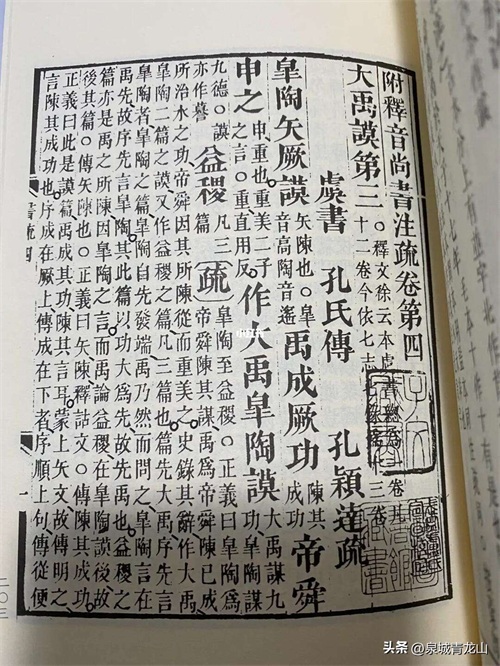 附釋音尚書注疏卷第四
大禹謨第三
○釋文徐云本虞
卷凡
十二卷今依七志
三卷
虞書 孔氏傳 孔穎達疏
皐陶矢厥謨
矢陳也○皐
音高陶音遙
禹成厥功
陳其
成功
帝舜
申之
申重也重美二子
之言○重直用反
作大禹皐陶謨
大禹謀九
功皐陶謀
九德○謨
亦作謩
益稷
凡三
篇
疏
皐陶至益稷○正義曰皐陶爲
帝舜陳其謀禹爲帝舜陳已成
所治水之功帝舜因其所陳從而重美之史錄其辭作大禹
皐陶二篇之謨又作益稷之篇凡三篇也篇先大禹序先言
皐陶者皐陶之篇皐陶自先發端禹乃然而問之皐陶言在
禹先故序先言皐陶其此篇以功大爲先故先禹也益稷之
篇亦是禹之所陳因皐陶之言而禹論益稷在皐陶謨後故
後其篇○傳矢陳也○正義曰矢陳釋詁文○傳陳其成功○
正義曰此是謨篇禹成其功陳其言耳蒙上矢文故傳明之
言陳其成功也序成在厥上傳成在下者序順上句傳從便
書疏四
一
二〇三
头条 @泉城青龙山